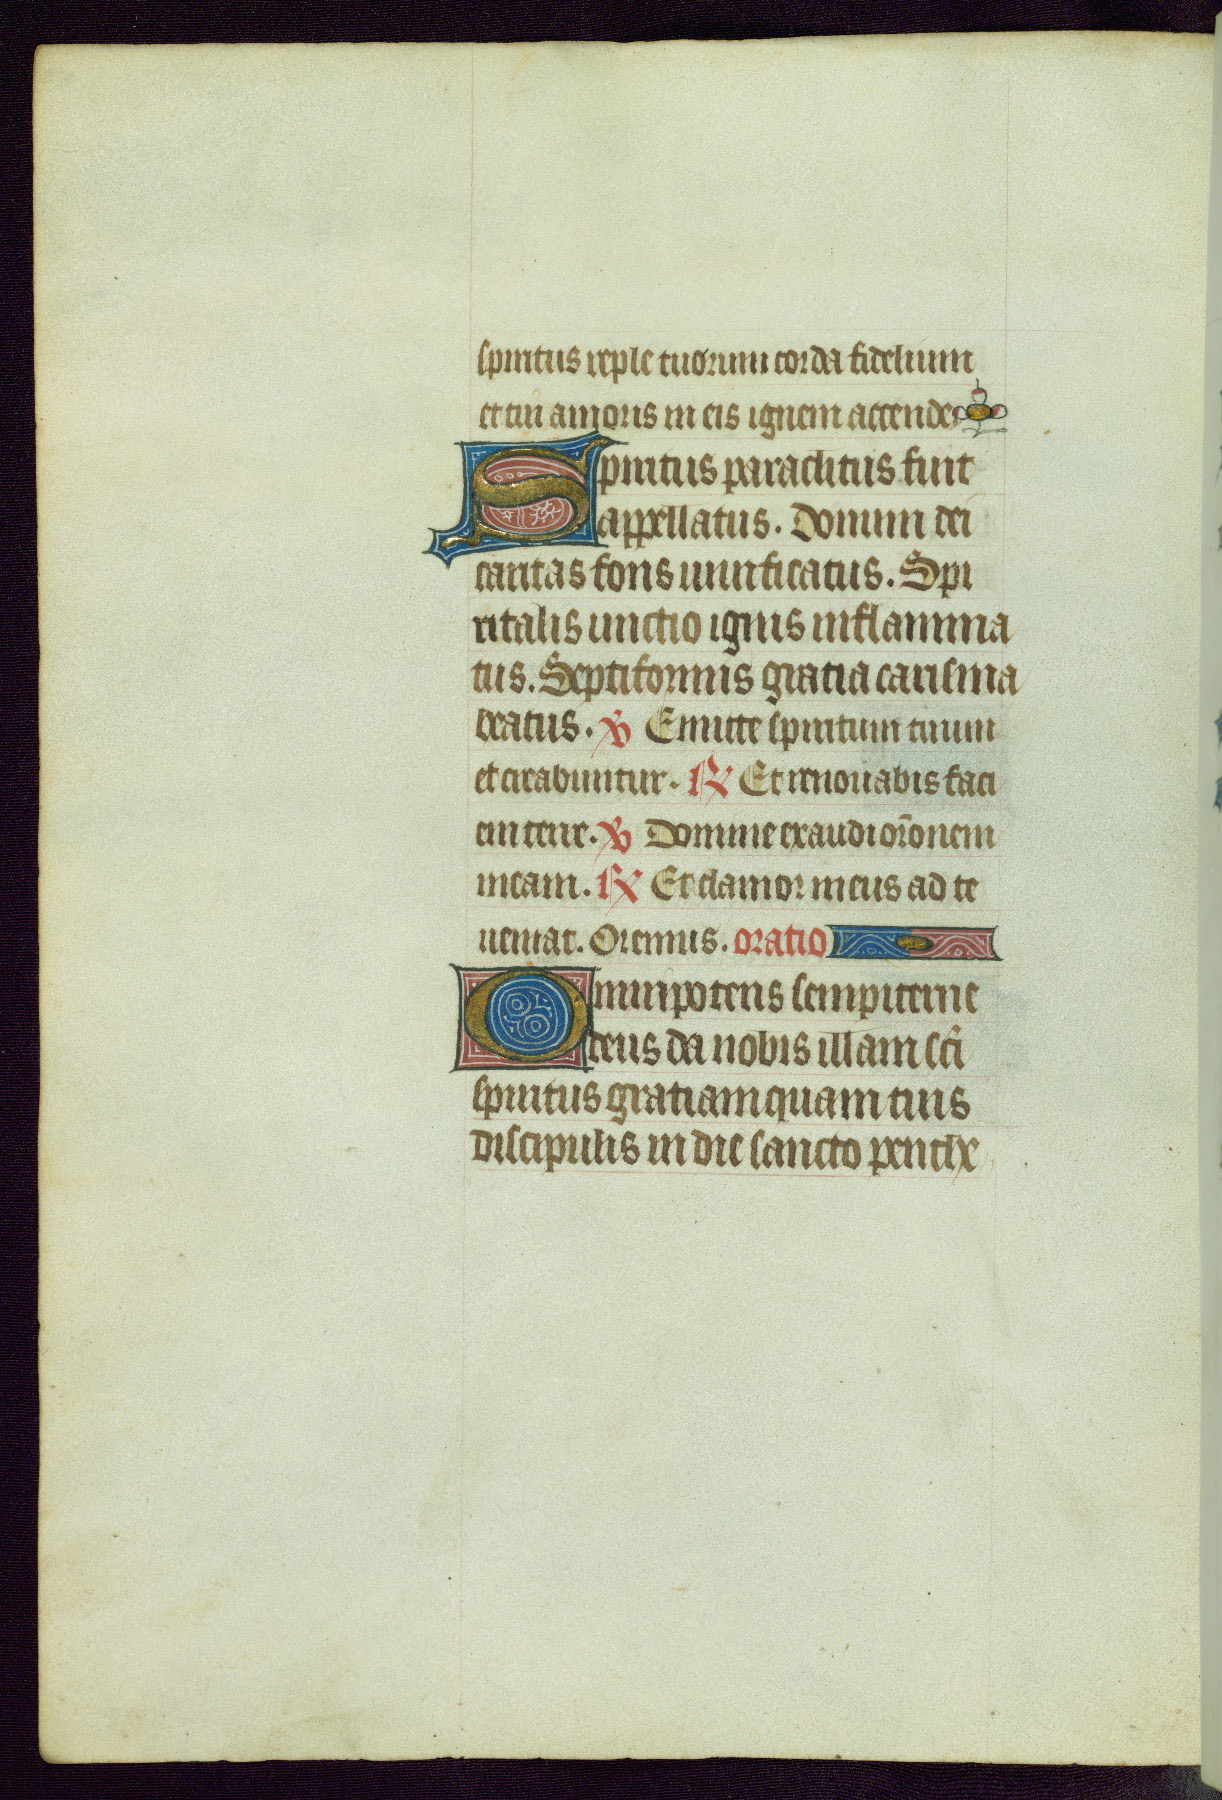 spiritus reple tuorum corda fidelium
et tui amoris in eis ignem accende
Spiritus paraclitus fuit
appellatus. Donum dei
caritas fons uiuificatus. Spi
ritalis unctio ignis inflamma
tus. Septiformis gratia carisma
deatus. ℣ Emitte spiritum tuum
et creabuntur. ℟ Et renouabis faci
em terre. ℣ Domine exaudi or̄onem
meam. ℟ Et clamor meus ad te
ueniat. Oremus. oratio
Omnipotens sempiterne
deus da nobis illam sc̄i
spiritus gratiam quam tuis
discipulis in die sancto penthe